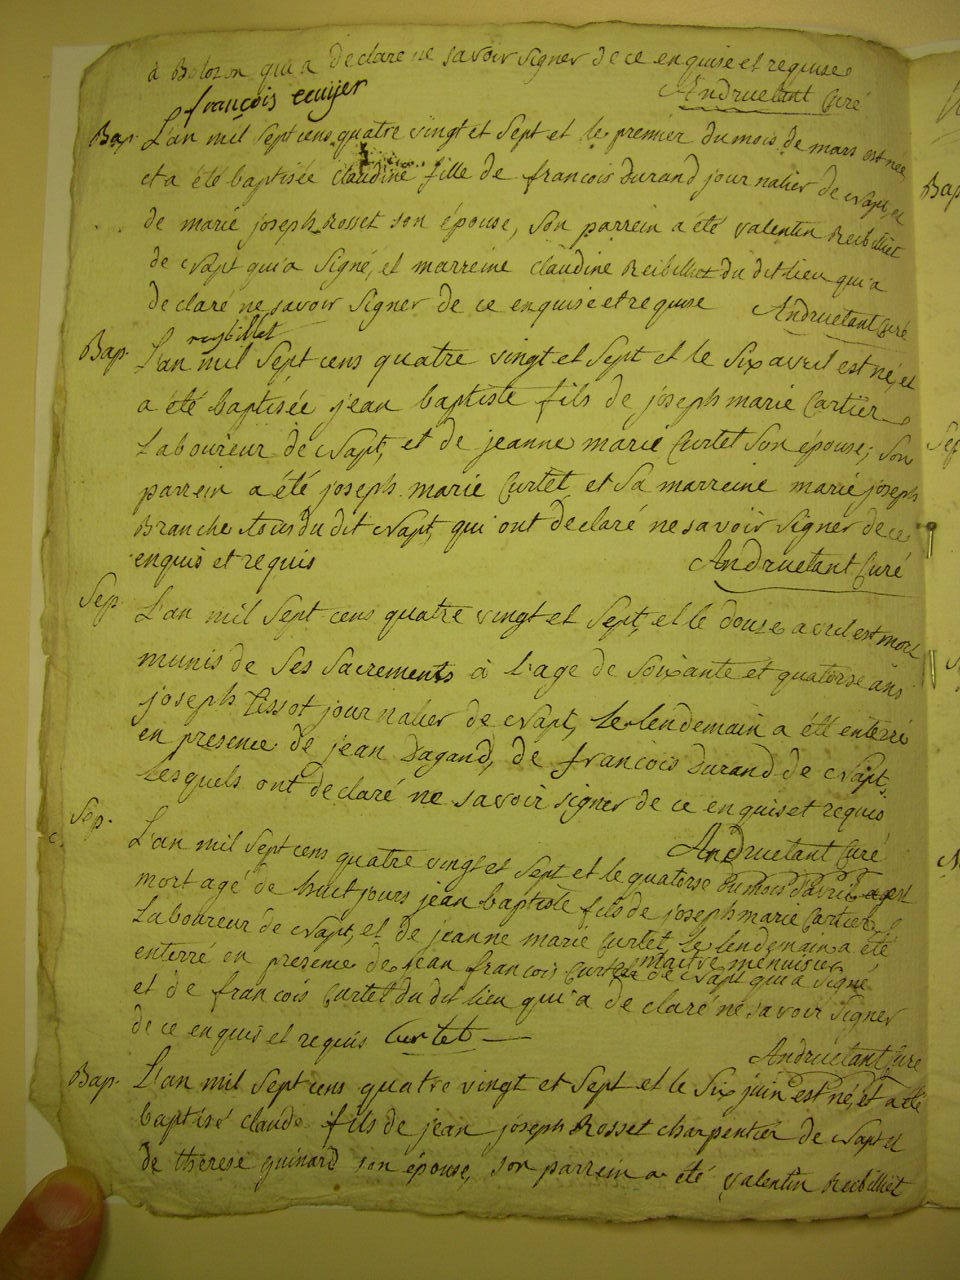 à Bolozon qui a declaré ne savoir signer de ce enquise et requise
françois ecuijer Andruetant Curé
Bap. L'an mil sept cens quatre vingt et sept et le premier du mois de mars est née
et a été baptisée claudine fille de francois Durand journalier de Napt, et
de marie joseph Rosset son épouse, son parrein a été valentin Reibilliet
de Napt qui a signé, et marreine claudine Reibilliet du dit lieu qui a
declaré ne savoir signer de ce enquise et requise Andruetant Curé
reybillet
Bap. L'an mil sept cens quatre vingt et sept et le six avril est né, et
a été baptisée jean baptiste fils de joseph marie Cartier
Laboureur de Napt, et de jeanne marie Curtet son épouse; son
parrein a été joseph marie Curtet et sa marreine marie joseph
Branche tous du dit Napt, qui ont déclaré ne savoir signer de ce
enquis et requis Andruetant Curé
Sep. L'an mil sept cens quatre vingt et sept, et le douze avril est mort
munis de ses sacrements à l'age de soixante et quatorse ans
joseph tissot journalier de Napt, le lendemain a été enterré
en presence de jean Dagand, de francois Durand de Napt,
lesquels ont declaré ne savoir signer de ce enquis et requis
Andruetant Curé
Sep. L'an mil sept cens quatre vingt et sept et le quatorse du mois d'avril est
mort agé de huit jours jean baptiste fils de joseph marie Cartier
Laboureur de Napt, et de jeanne marie Curtet, le lendemain a été
enterré en presence de jean francois Curtet maitre menuisier de Napt qui a signé
et de francois Curtet du dit lieu qui a declaré ne savoir signer
de ce enquis et requis Curtet
Andruetant Curé
Bap. L'an mil sept cens quatre vingt et sept et le six juin est né, et a été
baptisé claude fils de jean joseph Rosset charpentier de Napt et
de therese guinard son épouse, son parrein a été valentin Reibilliet
Bap
Sep